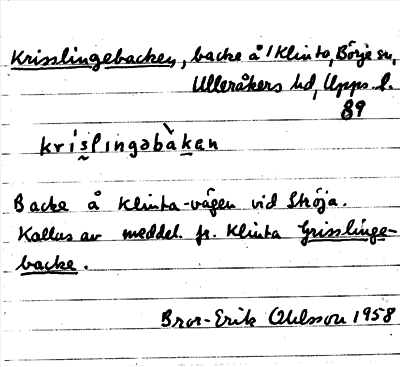 Krisslingebacken, backe å Klinta, Börje sn,
Ulleråkers hd, Upps. l.
89
krislingəbàkən
Backe å Klinta-vägen vid Ströja.
Kallas av meddel. fr. Klinta Grisslinge-
backe.
Bror-Erik Ohlsson 1958